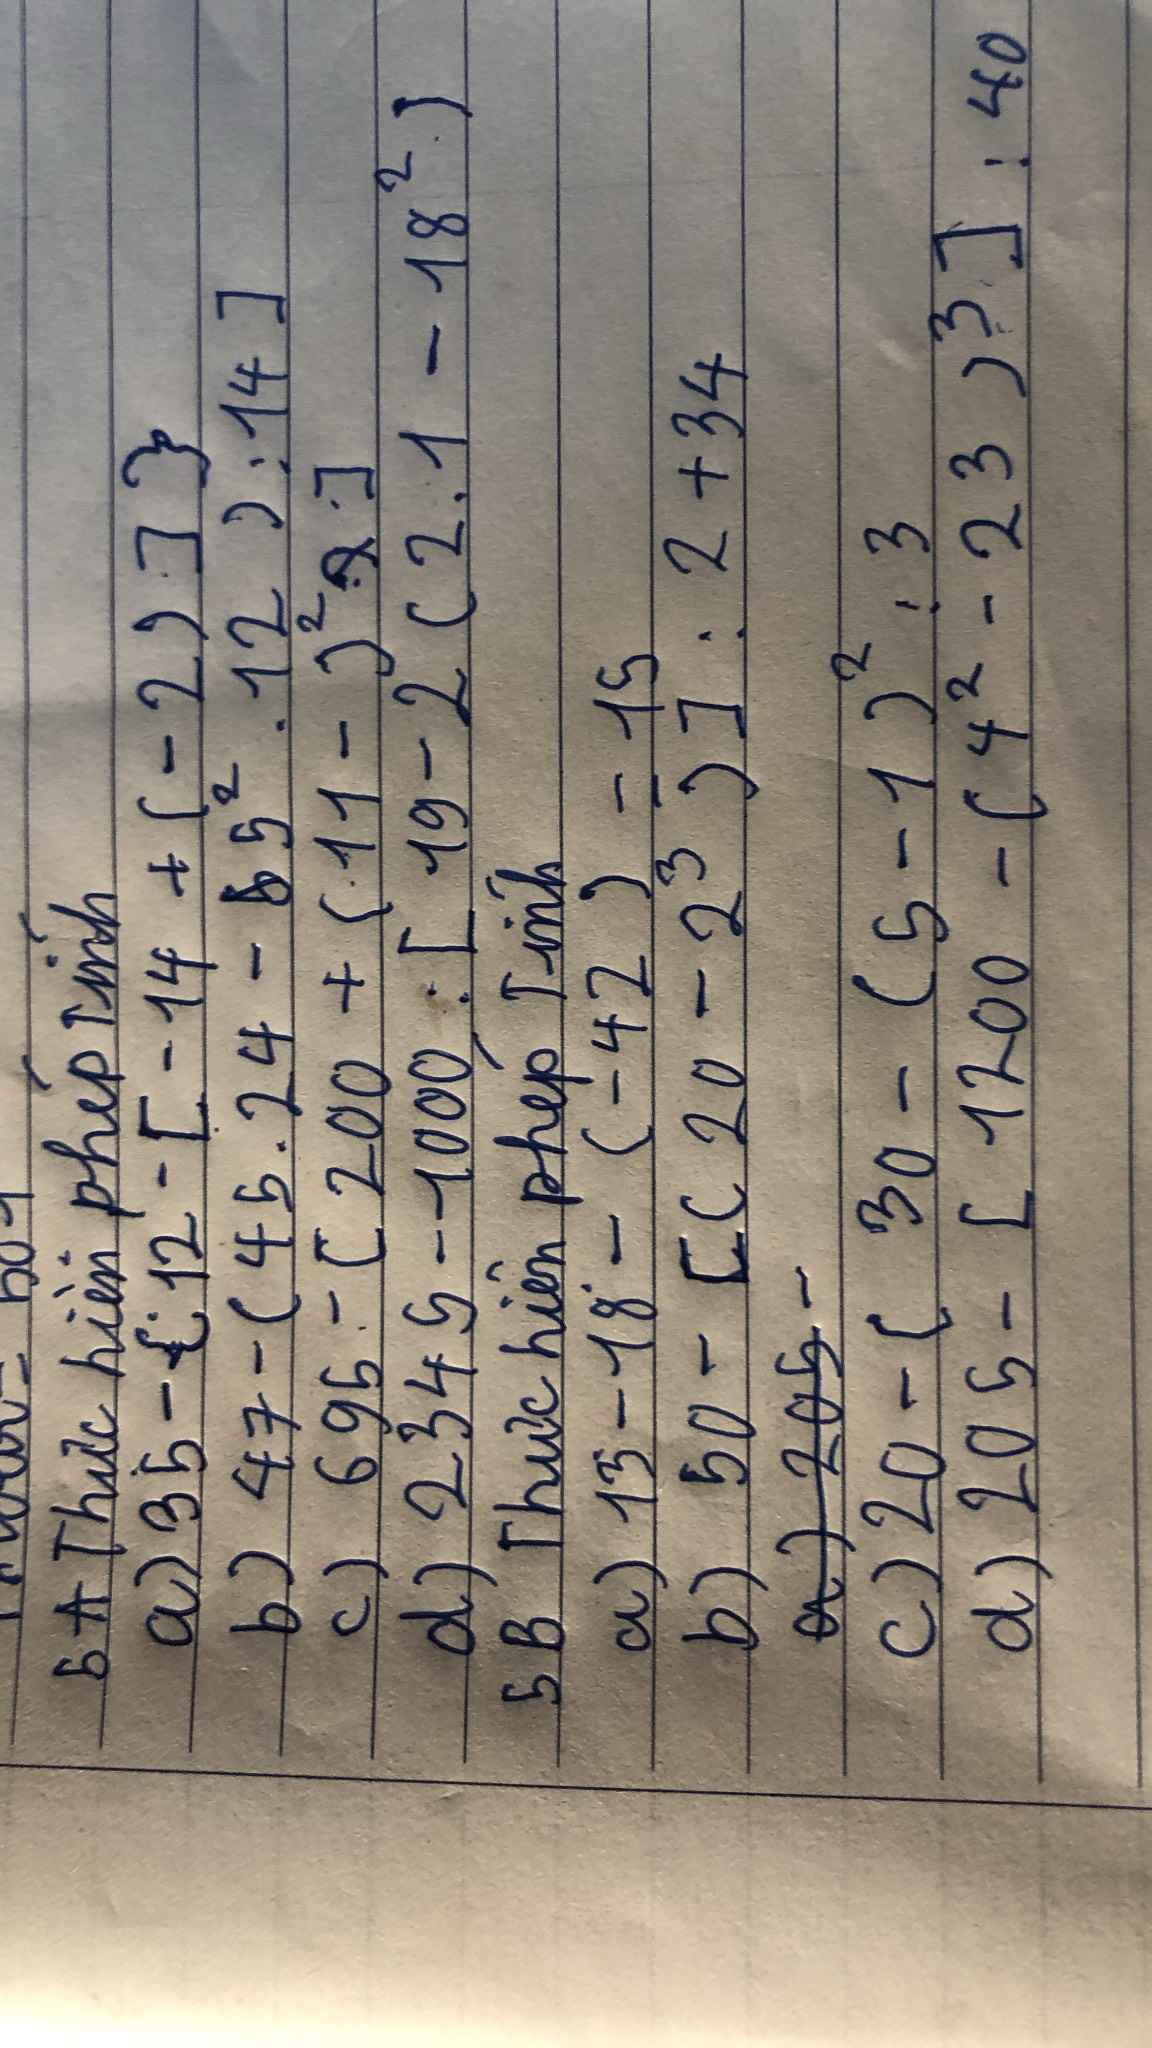 5A Thưc hiên phép Tính
a) 35 - { 12 - [ - 14 + ( - 2 ) ] }
b) 47 - ( 45 . 24 - 5² . 12 ) : 14 ]
c) 695 - [ 200 + ( 11 - )² ]
d) 2345 - 1000 : [ 19 - 2 ( 2 . 1 - 18² )
5B Thưc hiên phép Tính
a) 13 - 18 - ( - 42 ) - 15
b) 50 - [ ( 20 - 2³ ) ] : 2 + 34
a) 205 -
c) 20 - [ 30 - ( 5 - 1 )² : 3
d) 205 - [ 1200 - ( 4² - 23 )³ ] : 40